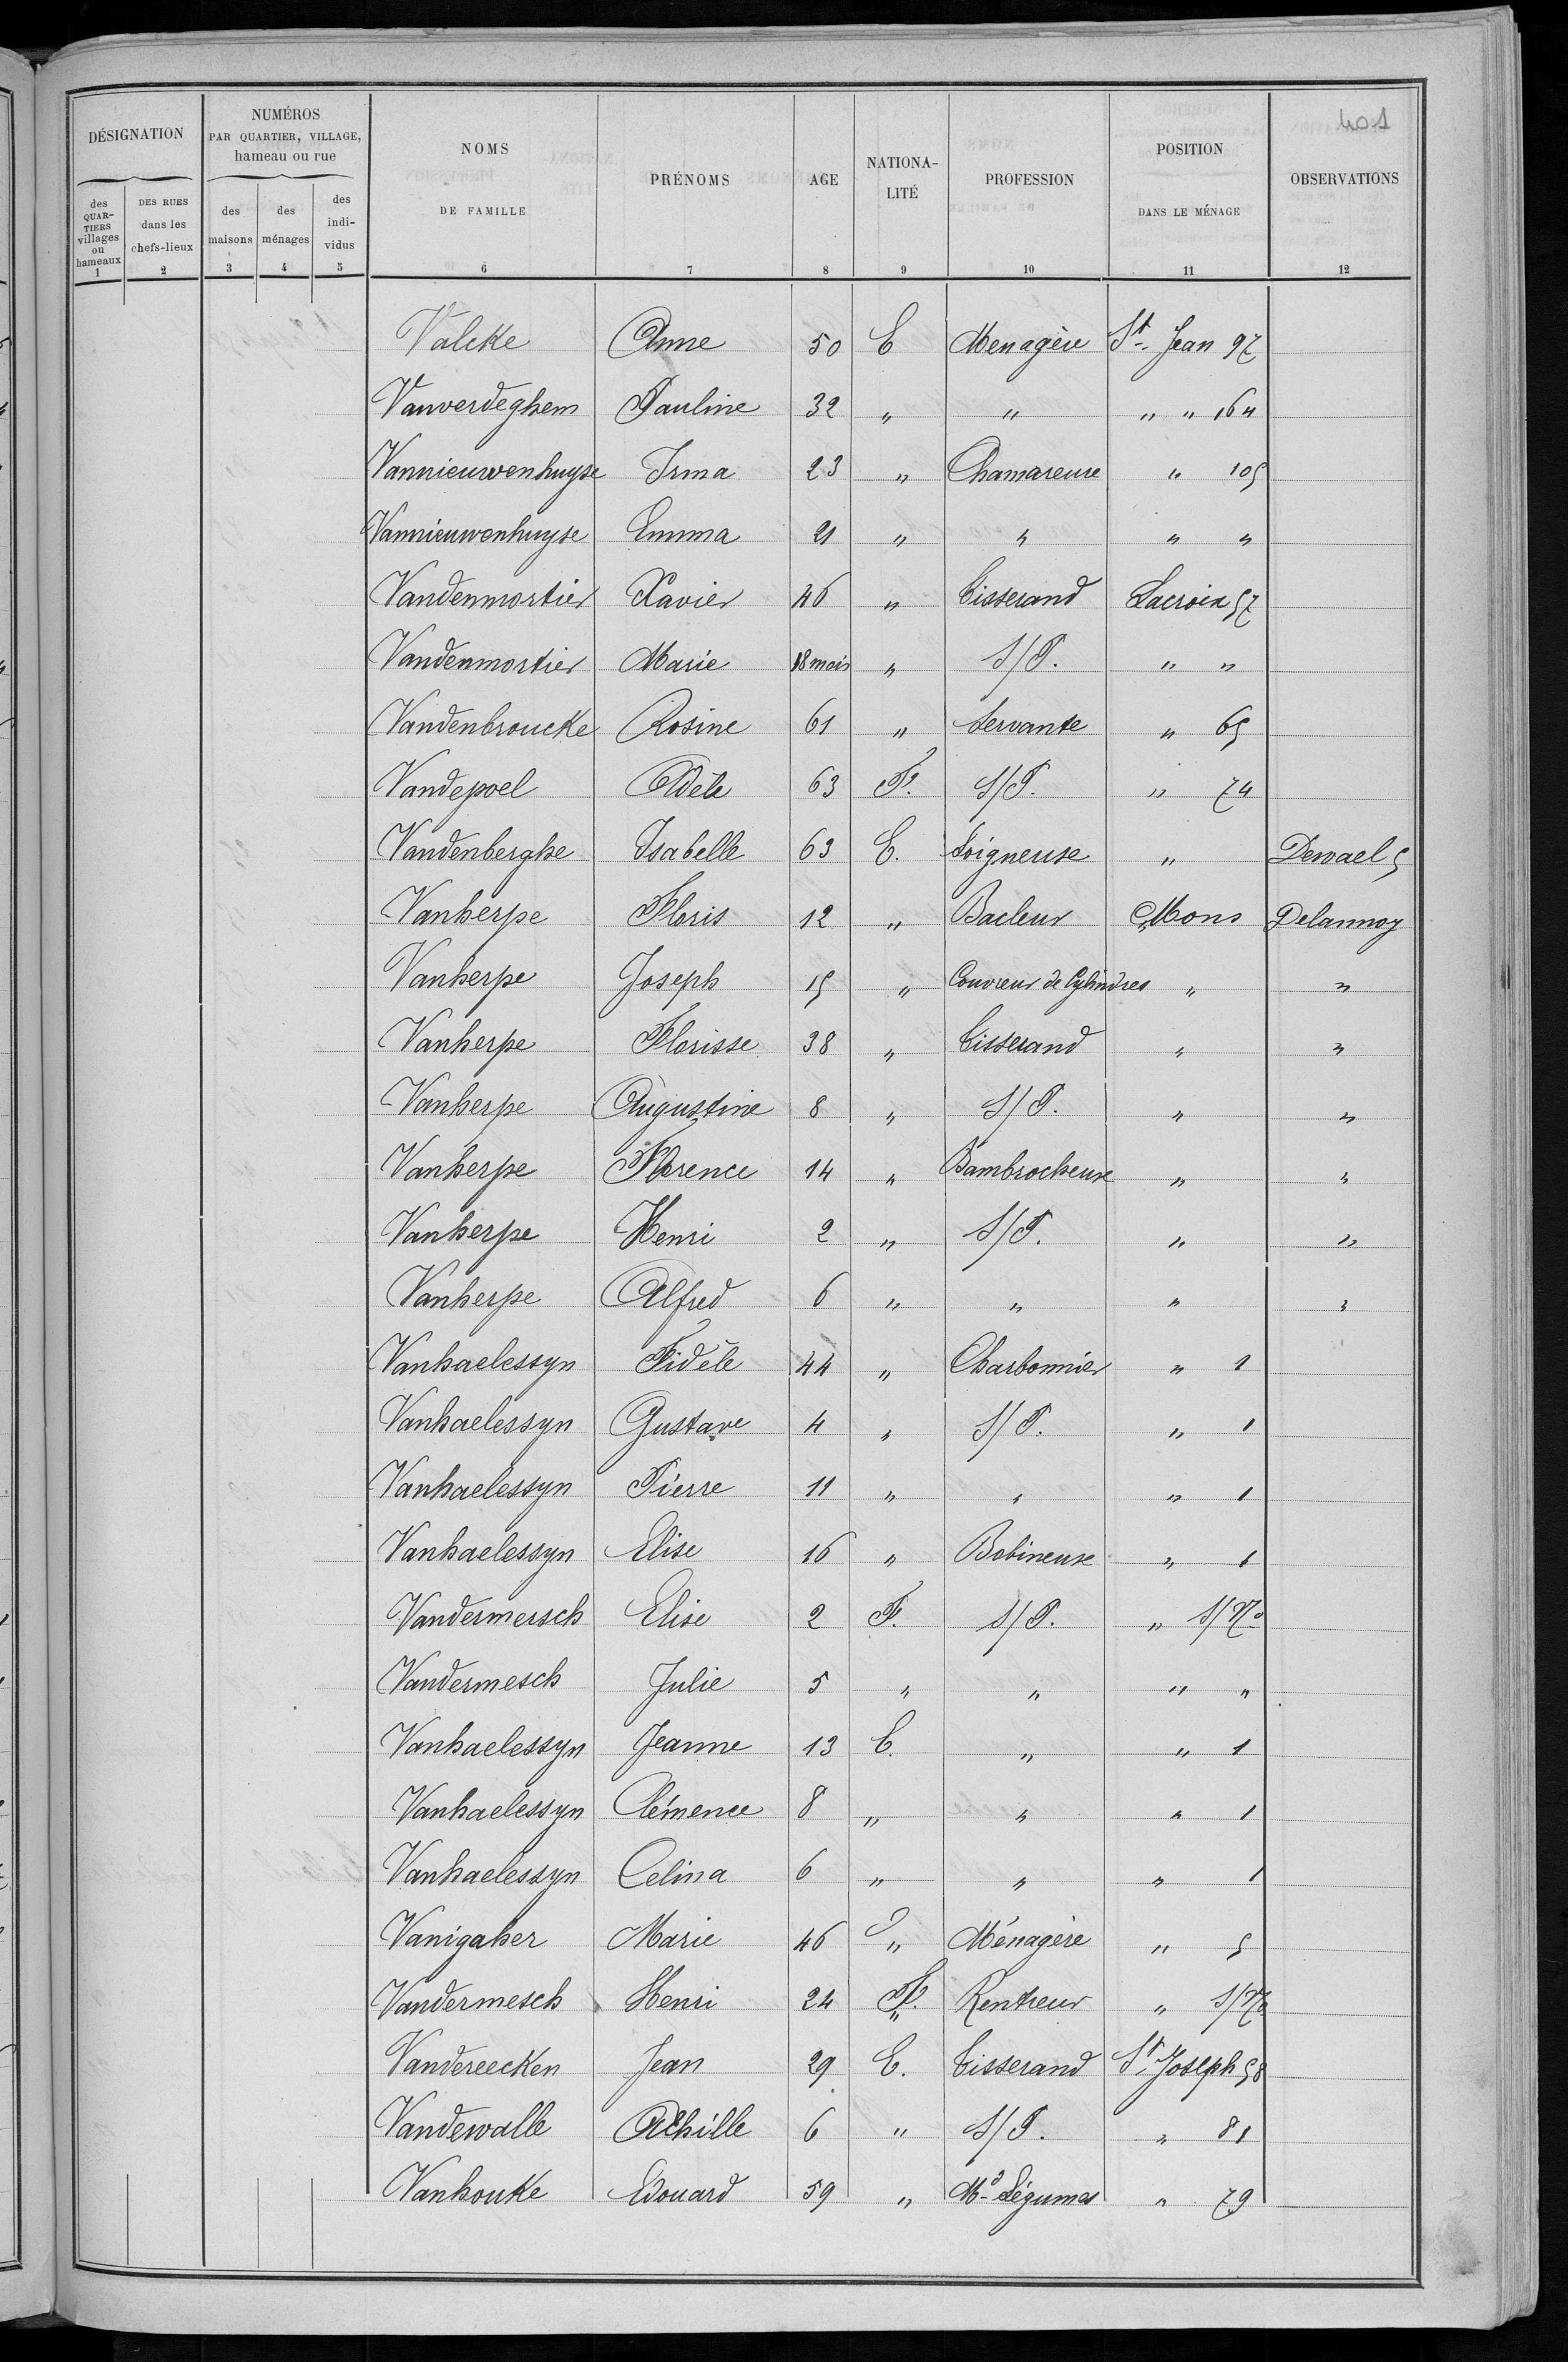 401
DÉSIGNATION
NUMÉROS
PAR QUARTIER, VILLAGE,
hameau ou rue
NOMS
DE FAMILLE
PRÉNOMS
AGE
NATIONA-
LITÉ
PROFESSION
POSITION
DANS LE MÉNAGE
OBSERVATIONS
des
QUAR-
TIERS
villages
ou
hameaux
DES RUES
dans les
chefs-lieux
des
maisons
des
ménages
des
indi-
vidus
1 2 3 4 5 6 7 8 9 10 11 12
Valcke Anne 50 E Menagère St. Jean 97
Vanverdeghem Pauline 32 " " " " 164
Vannieuwenhuyse Irma 23 " Chamareuse " 105
Vannieuwenhuyse Emma 21 " " " "
Vandenmortier Xavier 46 " Tisserand Lacroix 57
Vandenmortier Marie 18 mois " S/P. " "
Vandenbroucke Rosine 61 " Servante " 65
Vandepoel Adèle 63 F. S/P. " 74
Vandenberghe Isabelle 63 E. Soigneuse " Dewael 5
Vanherpe Floris 12 " Bacleur Mons Delannoy
Vanherpe Joseph 15 " Couvreur de Cylindres " "
Vanherpe Florisse 38 " Tisserand " "
Vanherpe Augustine 8 " S/P. " "
Vanherpe Florence 14 " Bambrocheuse " "
Vanherpe Henri 2 " S/P. " "
Vanherpe Alfred 6 " " " "
Vanhaelessyn Fidèle 44 " Charbonnier " 1
Vanhaelessyn Gustave 4 " S/P. " 1
Vanhaelessyn Pierre 11 " " " 1
Vanhaelessyn Elise 16 " Bobineuse " 1
Vandermersch Elise 2 F. S/P. " S/No
Vandermesch Julie 5 " " " "
Vanhaelessyn Jeanne 13 E. " " 1
Vanhaelessyn Clémence 8 " " " 1
Vanhaelessyn Celina 6 " " " 1
Vanigaher Marie 46 " Ménagère " 5
Vandermesch Henri 24 F. Rentreur " S/No
Vandereecken Jean 29 E. Tisserand St. Joseph 58
Vandewalle Achille 6 " S/P. " 81
Vanhouke Edouard 59 " Md Légumes " 79